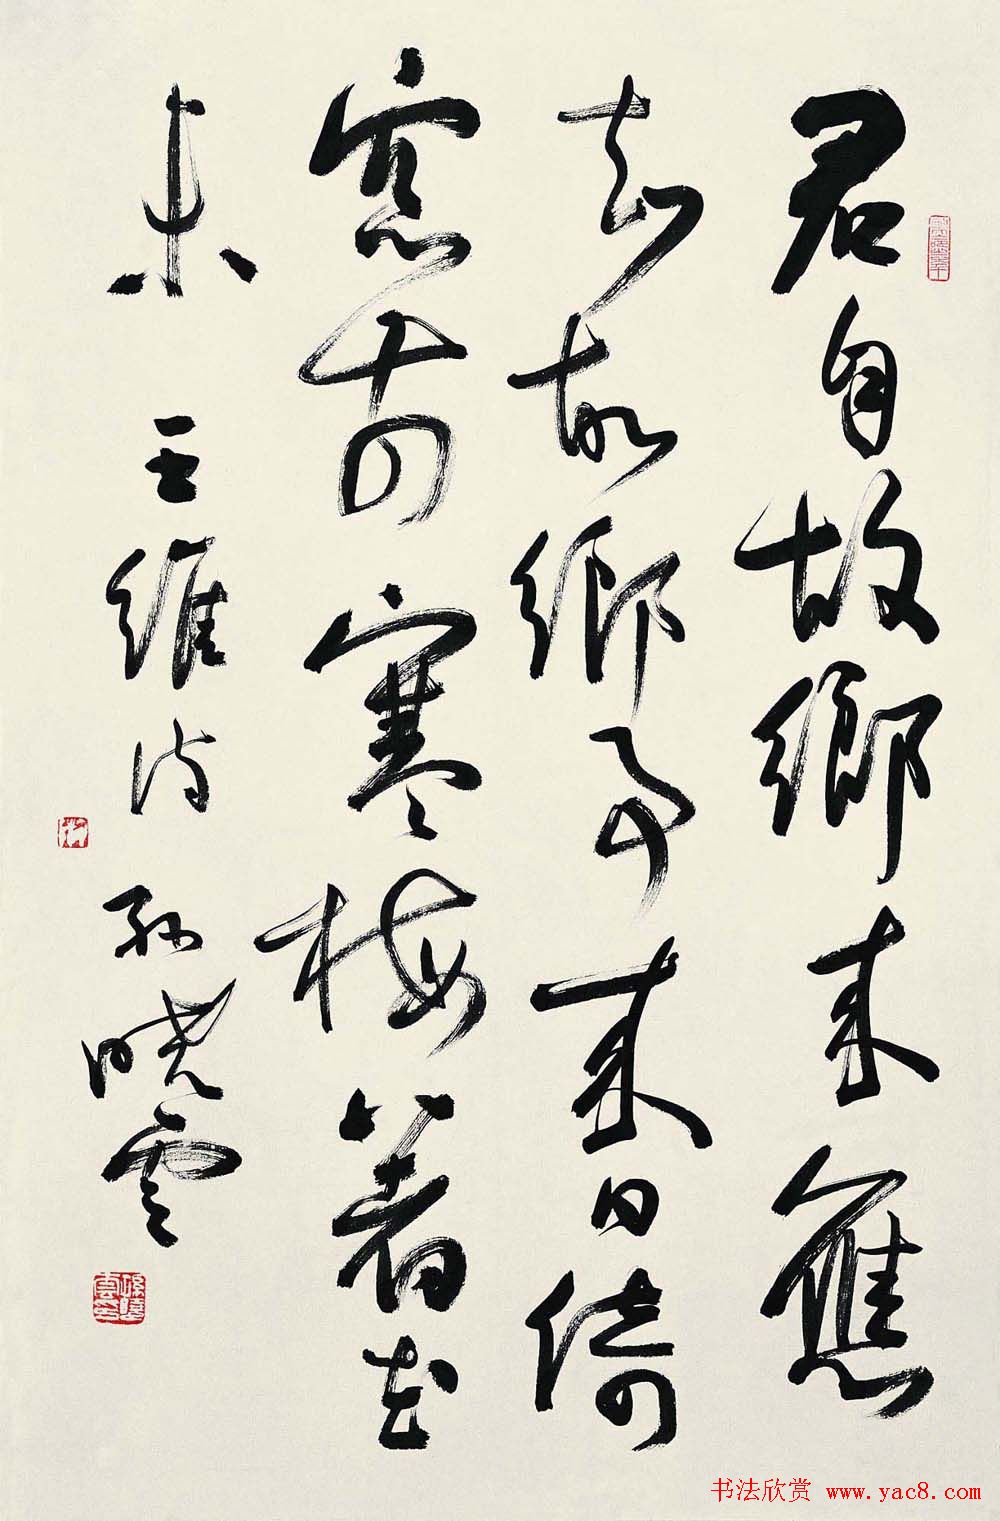 君自故鄉来應
知故鄉事来日綺
窓前寒梅著花
未 王維诗 孫曉雲
孫曉雲印
书法欣赏 www.yac8.com